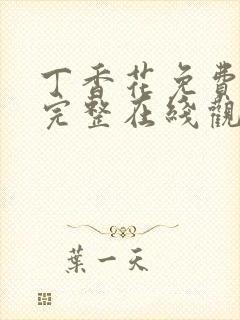 丁香花免費
完整在綫觀
葉一天